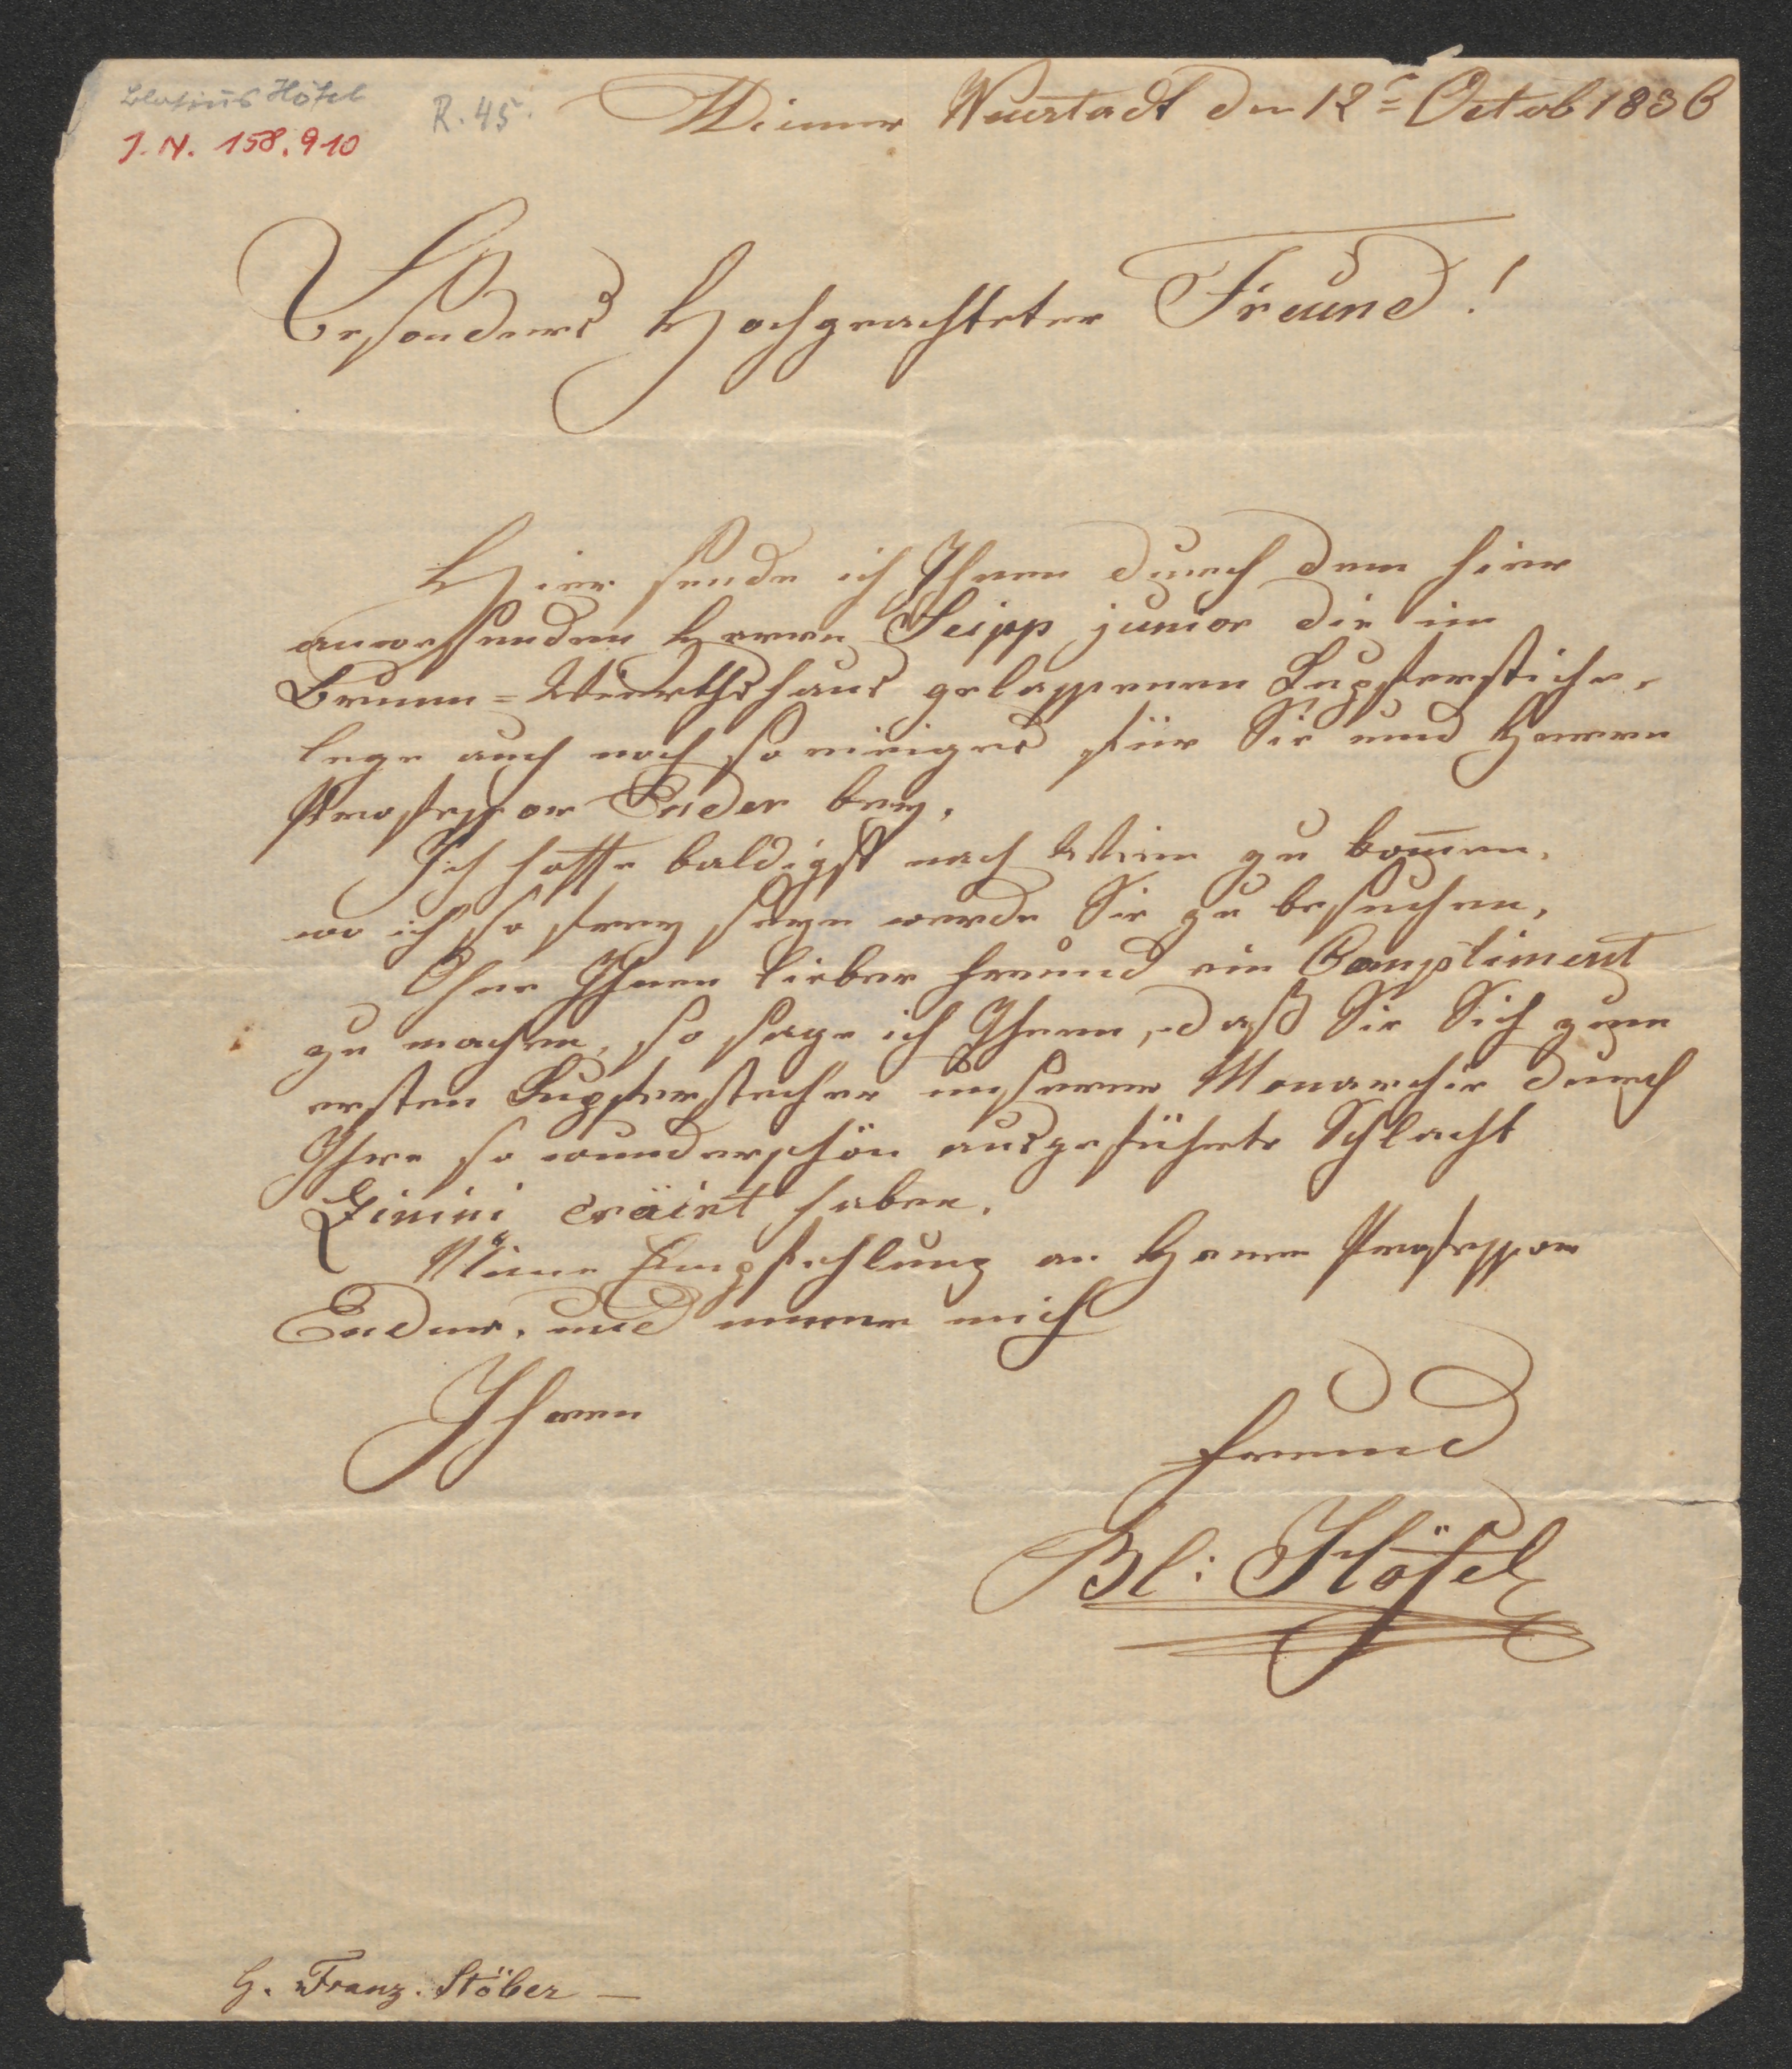 Blasius Höfel
R. 45.
J. N. 158.910
Wiener Neustadt den 12t Octob 1836
Besonders Hochgeachteter Freund!
Hier sende ich Ihnen durch dem hier
anwesenden Herrn Seipp junior die im
Brunn=Wierthshaus gelassenen Kupferstiche,
lege auch noch so einiges für Sie und Herrn
Professor Ender bey.
Ich hoffe baldigst nach Wien zu kom̄en,
wo ich so frey seyn werde Sie zu besuchen,
Ohne Ihnen lieber Freund ein Compliment
zu machen, so sage ich Ihnen, daß Sie Sich zum
ersten Kupferstecher unserer Monarchie durch
Ihre so wunderschön ausgeführte Schlacht
haben.
Meine Empfehlung an Herrn Professor
Ender, und nenne mich
Ihren
Freund
Bl: Höfel
H. Franz. Stöber —